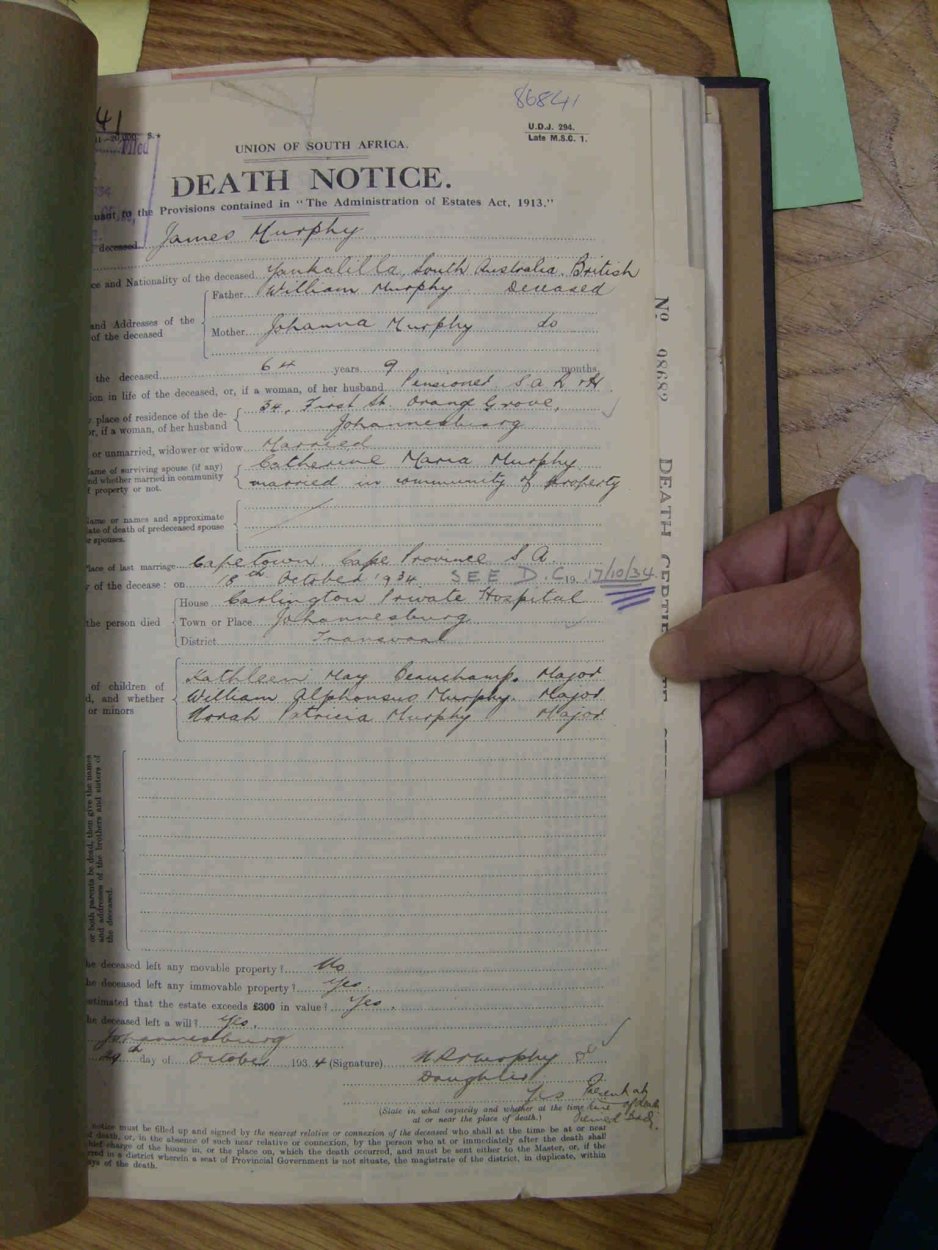 86841
41
U.D.J. 294.
Late M.S.C. 1.
Filed
UNION OF SOUTH AFRICA.
DEATH NOTICE.
uant to the Provisions contained in "The Administration of Estates Act, 1913."
deceased James Murphy
ce and Nationality of the deceased Yankalilla, South Australia. British
Father William Murphy Deceased
and Addresses of the
of the deceased
Mother Johanna Murphy do
the deceased 64 years 9 months
ion in life of the deceased, or, if a woman, of her husband Pensioned S A R & H.
y place of residence of the de-
or, if a woman, of her husband
34, First St. Orange Grove,
Johannesburg
or unmarried, widower or widow Married
ame of surviving spouse (if any)
nd whether married in community
f property or not.
Catherine Maria Murphy
married in community of property
ame or names and approximate
ate of death of predeceased spouse
r spouses.
lace of last marriage Capetown Cape Province S. A.
y of the decease: on 18th October 1934 SEE D.C 19 17/10/34.
the person died
House Carlington Private Hospital
Town or Place Johannesburg
District Transvaal
of children of
d, and whether
or minors
Kathleen May Beauchamp. Major
William Alphonsus Murphy. Major
Norah Patricia Murphy Major
or both parents be dead, then give the names
and addresses of the brothers and sisters of
the deceased.
he deceased left any movable property? No
he deceased left any immovable property? Yes.
estimated that the estate exceeds £300 in value? Yes.
he deceased left a will? Yes.
Johannesburg
day of October 1934 (Signature) Murphy
Daughter
Yes
(State in what capacity and whether at the time
at or near the place of death.)
notice must be filled up and signed by the nearest relative or connexion of the deceased who shall at the time be at or near
f death, or, in the absence of such near relative or connexion, by the person who at or immediately after the death shall
hief charge of the house in, or the place on, which the death occurred, and must be sent either to the Master, or, if the
rred in a district wherein a seat of Provincial Government is not situate, the magistrate of the district, in duplicate, within
ays of the death.
No
DEATH